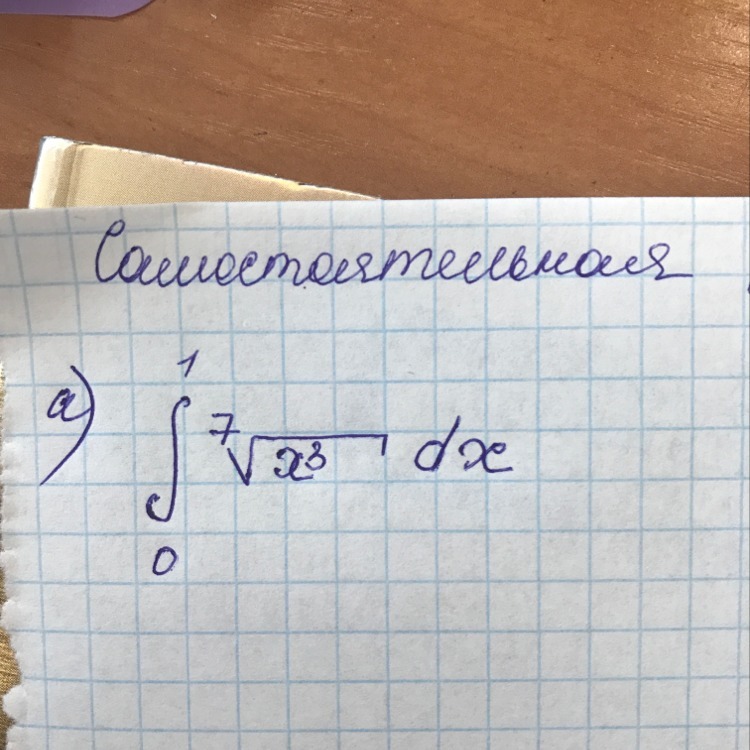 Самостоятельная
а) ∫₀¹ ⁷√x³ dx